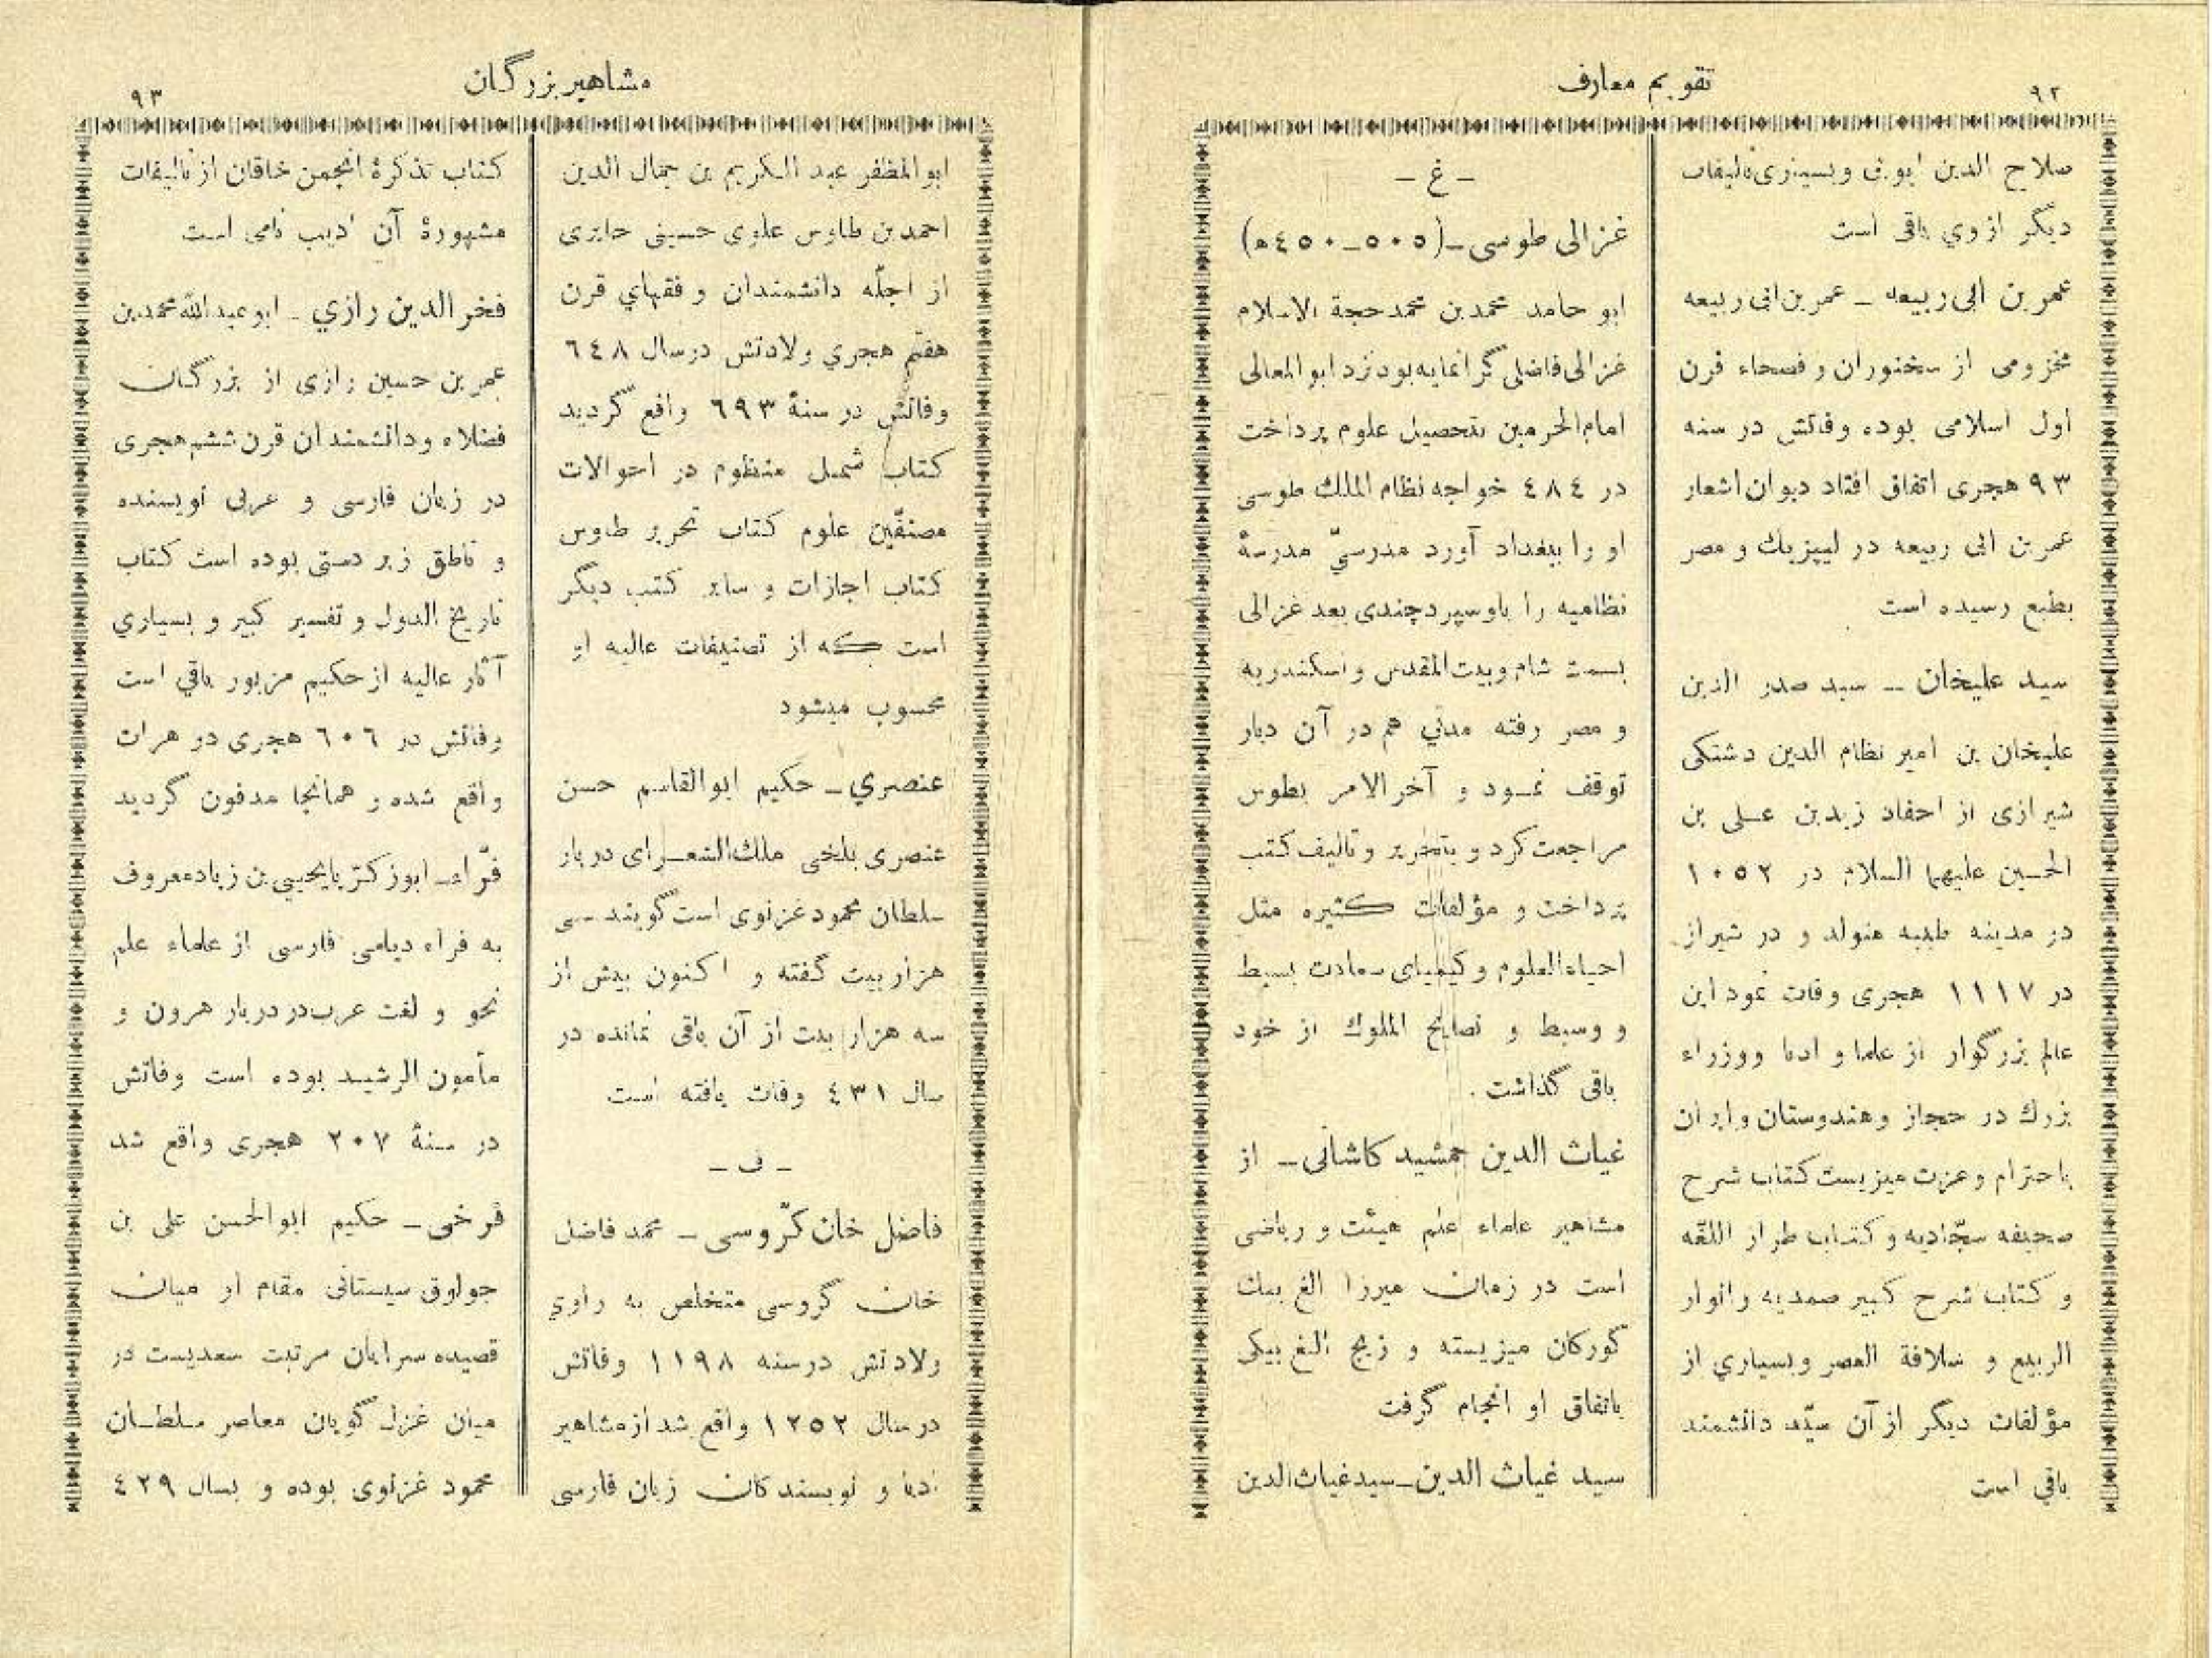 ۹۲
تقویم معارف
صلاح الدین ایوبی وبسیاری تالیفات
دیگر ازوي باقی است
عمر بن ابی ربیعه – عمر بن ابی ربیعه
مخزومی از سخنوران و فصحاء قرن
اول اسلامی بوده وفاتش در سنه
۹۳ هجری اتفاق افتاد دیوان اشعار
عمر بن ابی ربیعه در لیپزیك و مصر
بطبع رسیده است
سید علیخان – سید صدر الدین
علیخان بن امیر نظام الدین دشتکی
شیرازی از احفاد زیدبن علی بن
الحسین علیهما السلام در ۱۰۵۲
در مدینه طیبه متولد و در شیراز
در ۱۱۱۷ هجری وفات نمود این
عالم بزرگوار از علما و ادبا ووزراء
بزرك در حجاز وهندوستان وایران
باحترام وعزت میزیست کتاب شرح
صحیفه سجّادیه و کتاب طراز اللغه
و کتاب شرح کبیر صمدیه وانوار
الربیع و سلافة العصر وبسیاري از
مؤلفات دیگر از آن سیّد دانشمند
باقي است
– غ –
غزالی طوسی–(۵۰۵–۴۵۰ه)
ابو حامد محمدبن محمد حجة الاسلام
غزالی فاضلی گرانمایه بود نزد ابو المعالی
امام الحرمین بتحصیل علوم پرداخت
در ٤٨٤ خواجه نظام الملك طوسی
او را ببغداد آورد مدرسيّ مدرسهٔ
نظامیه را باوسپرد چندی بعد غزالی
بسمت شام وبیت المقدس واسکندریه
و مصر رفته مدتي هم در آن دیار
توقف نمود و آخر الامر بطوس
مراجعت کرد و بتحریر وتالیف کتب
پرداخت و مؤلفات کثیره مثل
احیاء العلوم وکیمیای سعادت بسیط
و وسیط و نصایح الملوك از خود
باقی گذاشت .
غیاث الدین جمشید کاشانی– از
مشاهیر علماء علم هیئت و ریاضی
است در زمان میرزا الغ بیك
گورکان میزیسته و زیج الغ بیکی
باتفاق او انجام گرفت
سید غیاث الدین–سید غیاث الدین
مشاهیر بزرگان
۹۳
ابوالمظفر عبد الکریم بن جمال الدین
احمدبن طاوس علوی حسینی حایری
از اجلّه دانشمندان و فقهاي قرن
هفتم هجري ولادتش درسال ٦٤٨
وفاتش در سنهٔ ٦٩٣ واقع گردید
کتاب شمل منظوم در احوالات
مصنفّین علوم کتاب تحریر طاوس
کتاب اجازات و سایر کتب دیگر
است که از تصنیفات عالیه او
محسوب میشود
عنصري – حکیم ابوالقاسم حسن
عنصری بلخی ملك الشعرای دربار
سلطان محمود غزنوی است گویند سی
هزار بیت گفته و اکنون بیش از
سه هزار بیت از آن باقی نمانده در
سال ٤٣١ وفات یافته است
– ف –
فاضل خان کرّوسی – محمد فاضل
خان گروسی متخلص به راوي
ولادتش درسنه ۱۱۹۸ وفاتش
درسال ۱۲۵۲ واقع شد ازمشاهیر
ادبا و نویسندکان زبان فارسی
کتاب تذکرهٔ انجمن خاقان از تالیفات
مشهورهٔ آن ادیب نامی است
فخر الدین رازي – ابوعبدالله محمدبن
عمر بن حسین رازی از بزرگان
فضلاء ودانشمندان قرن ششم هجری
در زبان فارسی و عربی نویسنده
و ناطق زبر دستی بوده است کتاب
تاریخ الدول و تفسیر کبیر و بسیاري
آثار عالیه از حکیم مزبور باقي است
وفاتش در ٦٠٦ هجری در هرات
واقع شده و همانجا مدفون گردید
فرّاء– ابوزکریّا یحیی بن زیاد معروف
به فراء دیلمی فارسی از علماء علم
نحو و لغت عرب در دربار هرون و
مأمون الرشید بوده است وفاتش
در سنهٔ ۲۰۷ هجری واقع شد
فرخی – حکیم ابوالحسن علی بن
جولوق سیستانی مقام او میان
قصیده سرایان مرتبت سعدیست در
میان غزل گویان معاصر سلطان
محمود غزنوی بوده و بسال ٤٢٩